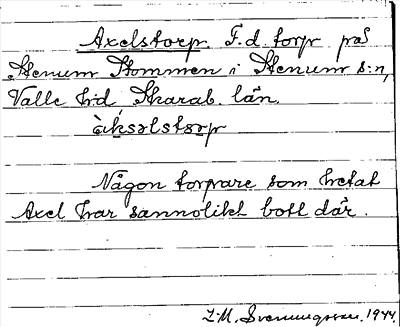 Axelstorp. F.d. torp på
Stenum Stommen i Stenum s:n,
Valle h:d, Skarab. län.
àksəlstɔrp
Någon torpare som hetat
Axel har sannolikt bott där.
L.M. Svenungsson. 1944.